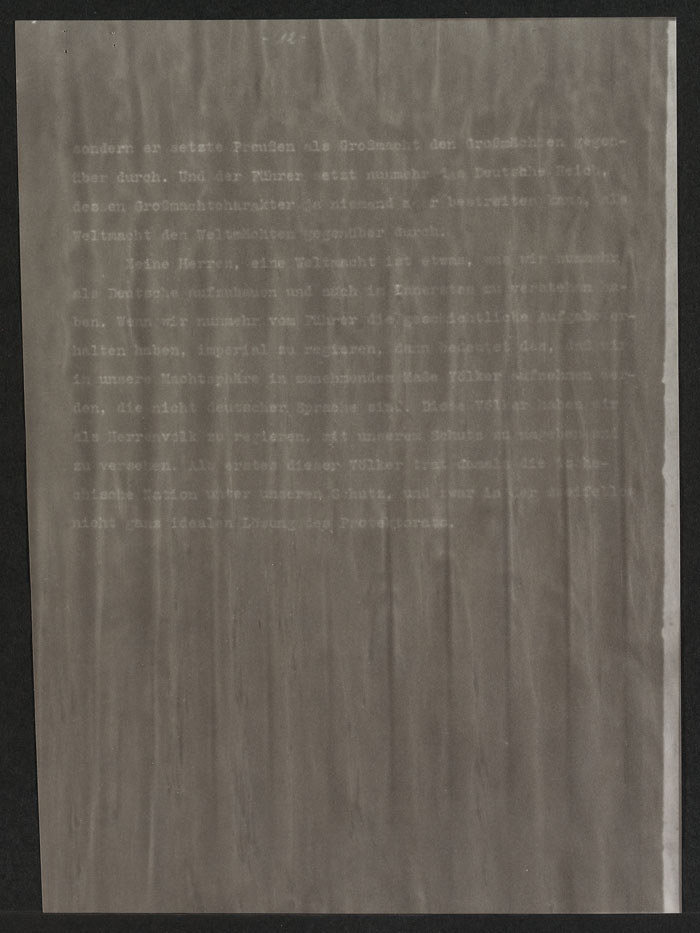 - 12 -
sondern er setzte Preußen als Großmacht den Großmächten gegen-
über durch. Und der Führer setzt nunmehr das Deutsche Reich,
dessen Großmachtcharakter ja niemand mehr bestreiten kann, als
Weltmacht den Weltmächten gegenüber durch.
Meine Herren, eine Weltmacht ist etwas, was wir nunmehr
als Deutsche aufzubauen und auch im Innersten zu verstehen ha-
ben. Wenn wir nunmehr vom Führer die geschichtliche Aufgabe er-
halten haben, imperial zu regieren, dann bedeutet das, daß wir
in unsere Machtsphäre in zunehmendem Maße Völker aufnehmen wer-
den, die nicht deutscher Sprache sind. Diese Völker haben wir
als Herrenvolk zu regieren, mit unserem Schutz zu umgeben und
zu versehen. Als erstes dieser Völker trat damals die tsche-
chische Nation unter unseren Schutz, und zwar in der zweifellos
nicht ganz idealen Lösung des Protektorats.